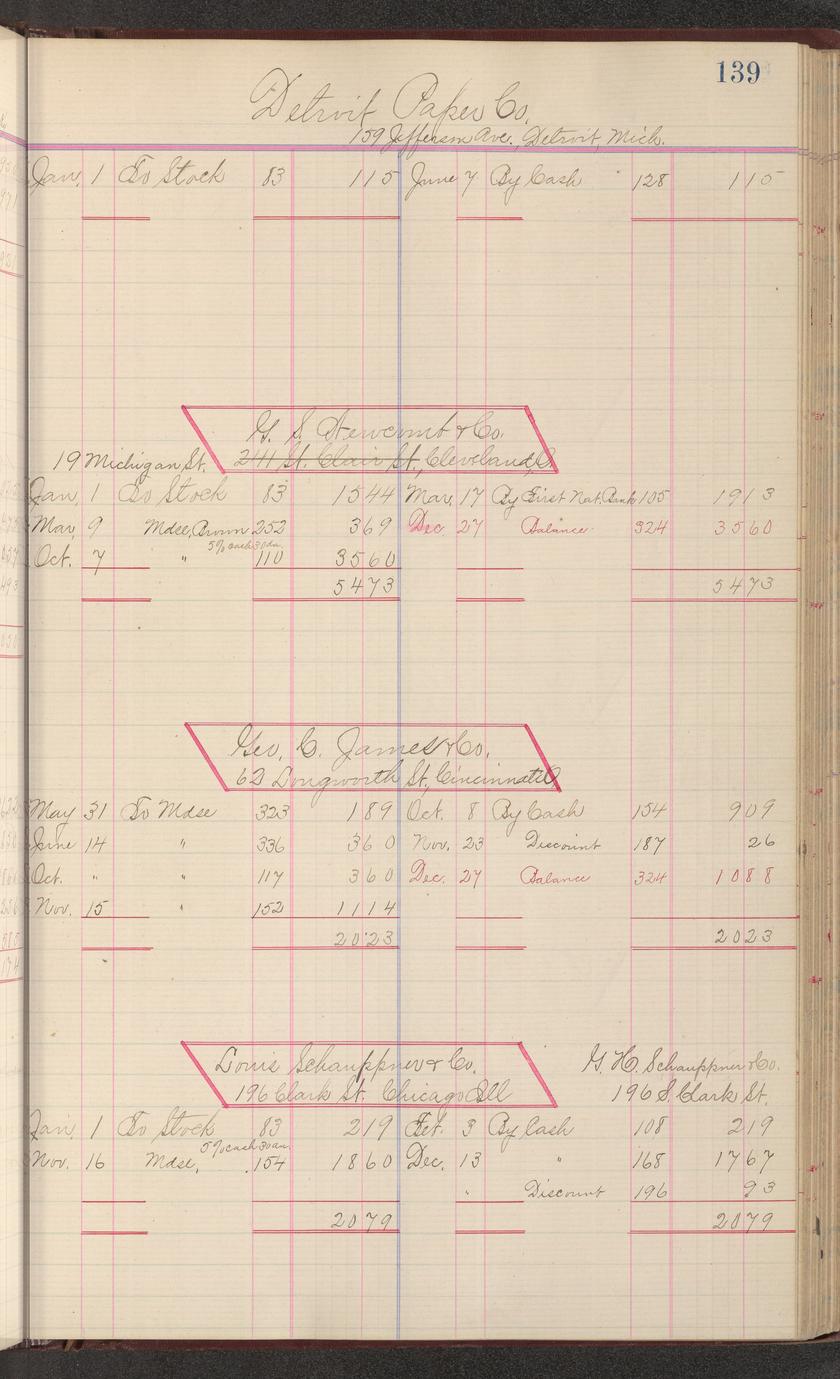 139
Detroit Paper Co.
159 Jefferson Ave., Detroit, Mich.
Jan. 1 To Stock 83 115 June 7 By Cash 128 115
G. S. Newcomb & Co.
19 Michigan St. 241 St. Clair St., Cleveland, O.
Jan. 1 To Stock 83 1544 Mar. 17 By First Nat. Bank 105 1913
Mar. 9 Mdse, Brown 252 369 Dec. 27 Balance 324 3560
5% cash 30 da.
Oct. 7 " 110 3560
5473 5473
Geo. C. James & Co.
62 Longworth St., Cincinnati O.
May 31 To Mdse 323 189 Oct. 8 By Cash 154 909
June 14 " 336 360 Nov. 23 Discount 187 26
Oct. " " 117 360 Dec. 27 Balance 324 1088
Nov. 15 " 152 1114
2023 2023
Louis Schauppner & Co. G. H. Schauppner & Co.
196 Clark St. Chicago Ill 196 S. Clark St.
Jan. 1 To Stock 83 219 Feb. 3 By Cash 108 219
5% cash 30 da.
Nov. 16 Mdse, 154 1860 Dec. 13 " 168 1767
" Discount 196 93
2079 2079